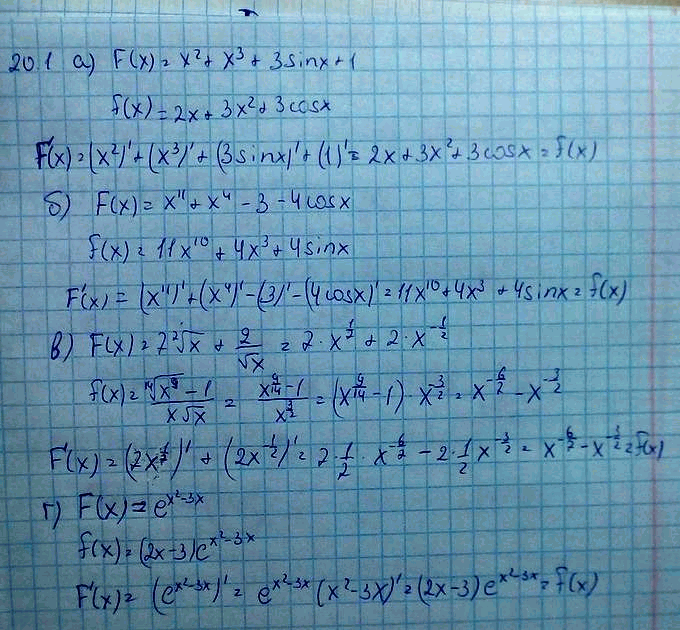 20.1 а) F(x) = x² + x³ + 3sinx + 1
f(x) = 2x + 3x² + 3cosx
F'(x) = (x²)' + (x³)' + (3sinx)' + (1)' = 2x + 3x² + 3cosx = f(x)
б) F(x) = x¹¹ + x⁴ - 3 - 4cosx
f(x) = 11x¹⁰ + 4x³ + 4sinx
F'(x) = (x¹¹)' + (x⁴)' - (3)' - (4cosx)' = 11x¹⁰ + 4x³ + 4sinx = f(x)
в) F(x) = 7 ⁷√x + 2/√x = 7·x^(1/7) + 2·x^(-1/2)
f(x) = (¹⁴√(x⁹) - 1)/(x√x) = (x^(9/14) - 1)/x^(3/2) = (x^(9/14) - 1)·x^(-3/2) = x^(-6/7) - x^(-3/2)
F'(x) = (7x^(1/7))' + (2x^(-1/2))' = 7·1/7·x^(-6/7) - 2·1/2 x^(-3/2) = x^(-6/7) - x^(-3/2) = f(x)
г) F(x) = e^(x²-3x)
f(x) = (2x-3)e^(x²-3x)
F'(x) = (e^(x²-3x))' = e^(x²-3x) (x²-3x)' = (2x-3) e^(x²-3x) = f(x)